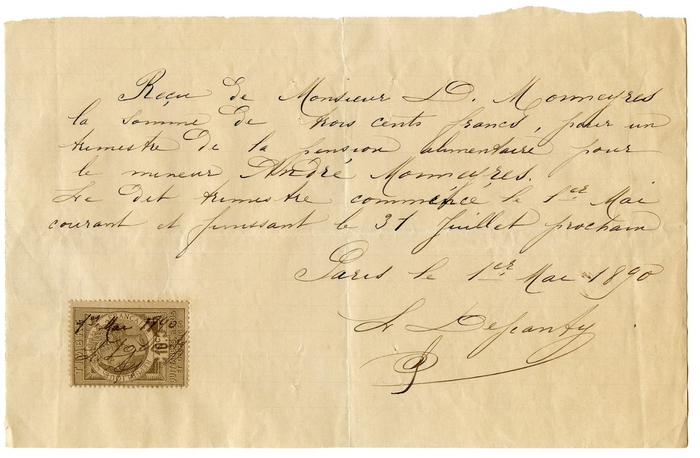 Reçu de Monsieur D. Monneyres
la somme de trois cents francs, pour un
trimestre de la pension alimentaire pour
le mineur André Monneyrès.
Le dit trimestre commencé le 1er Mai
courant et finissant le 31 Juillet prochain
Paris le 1er Mai 1890
1er Mai 1890
10c